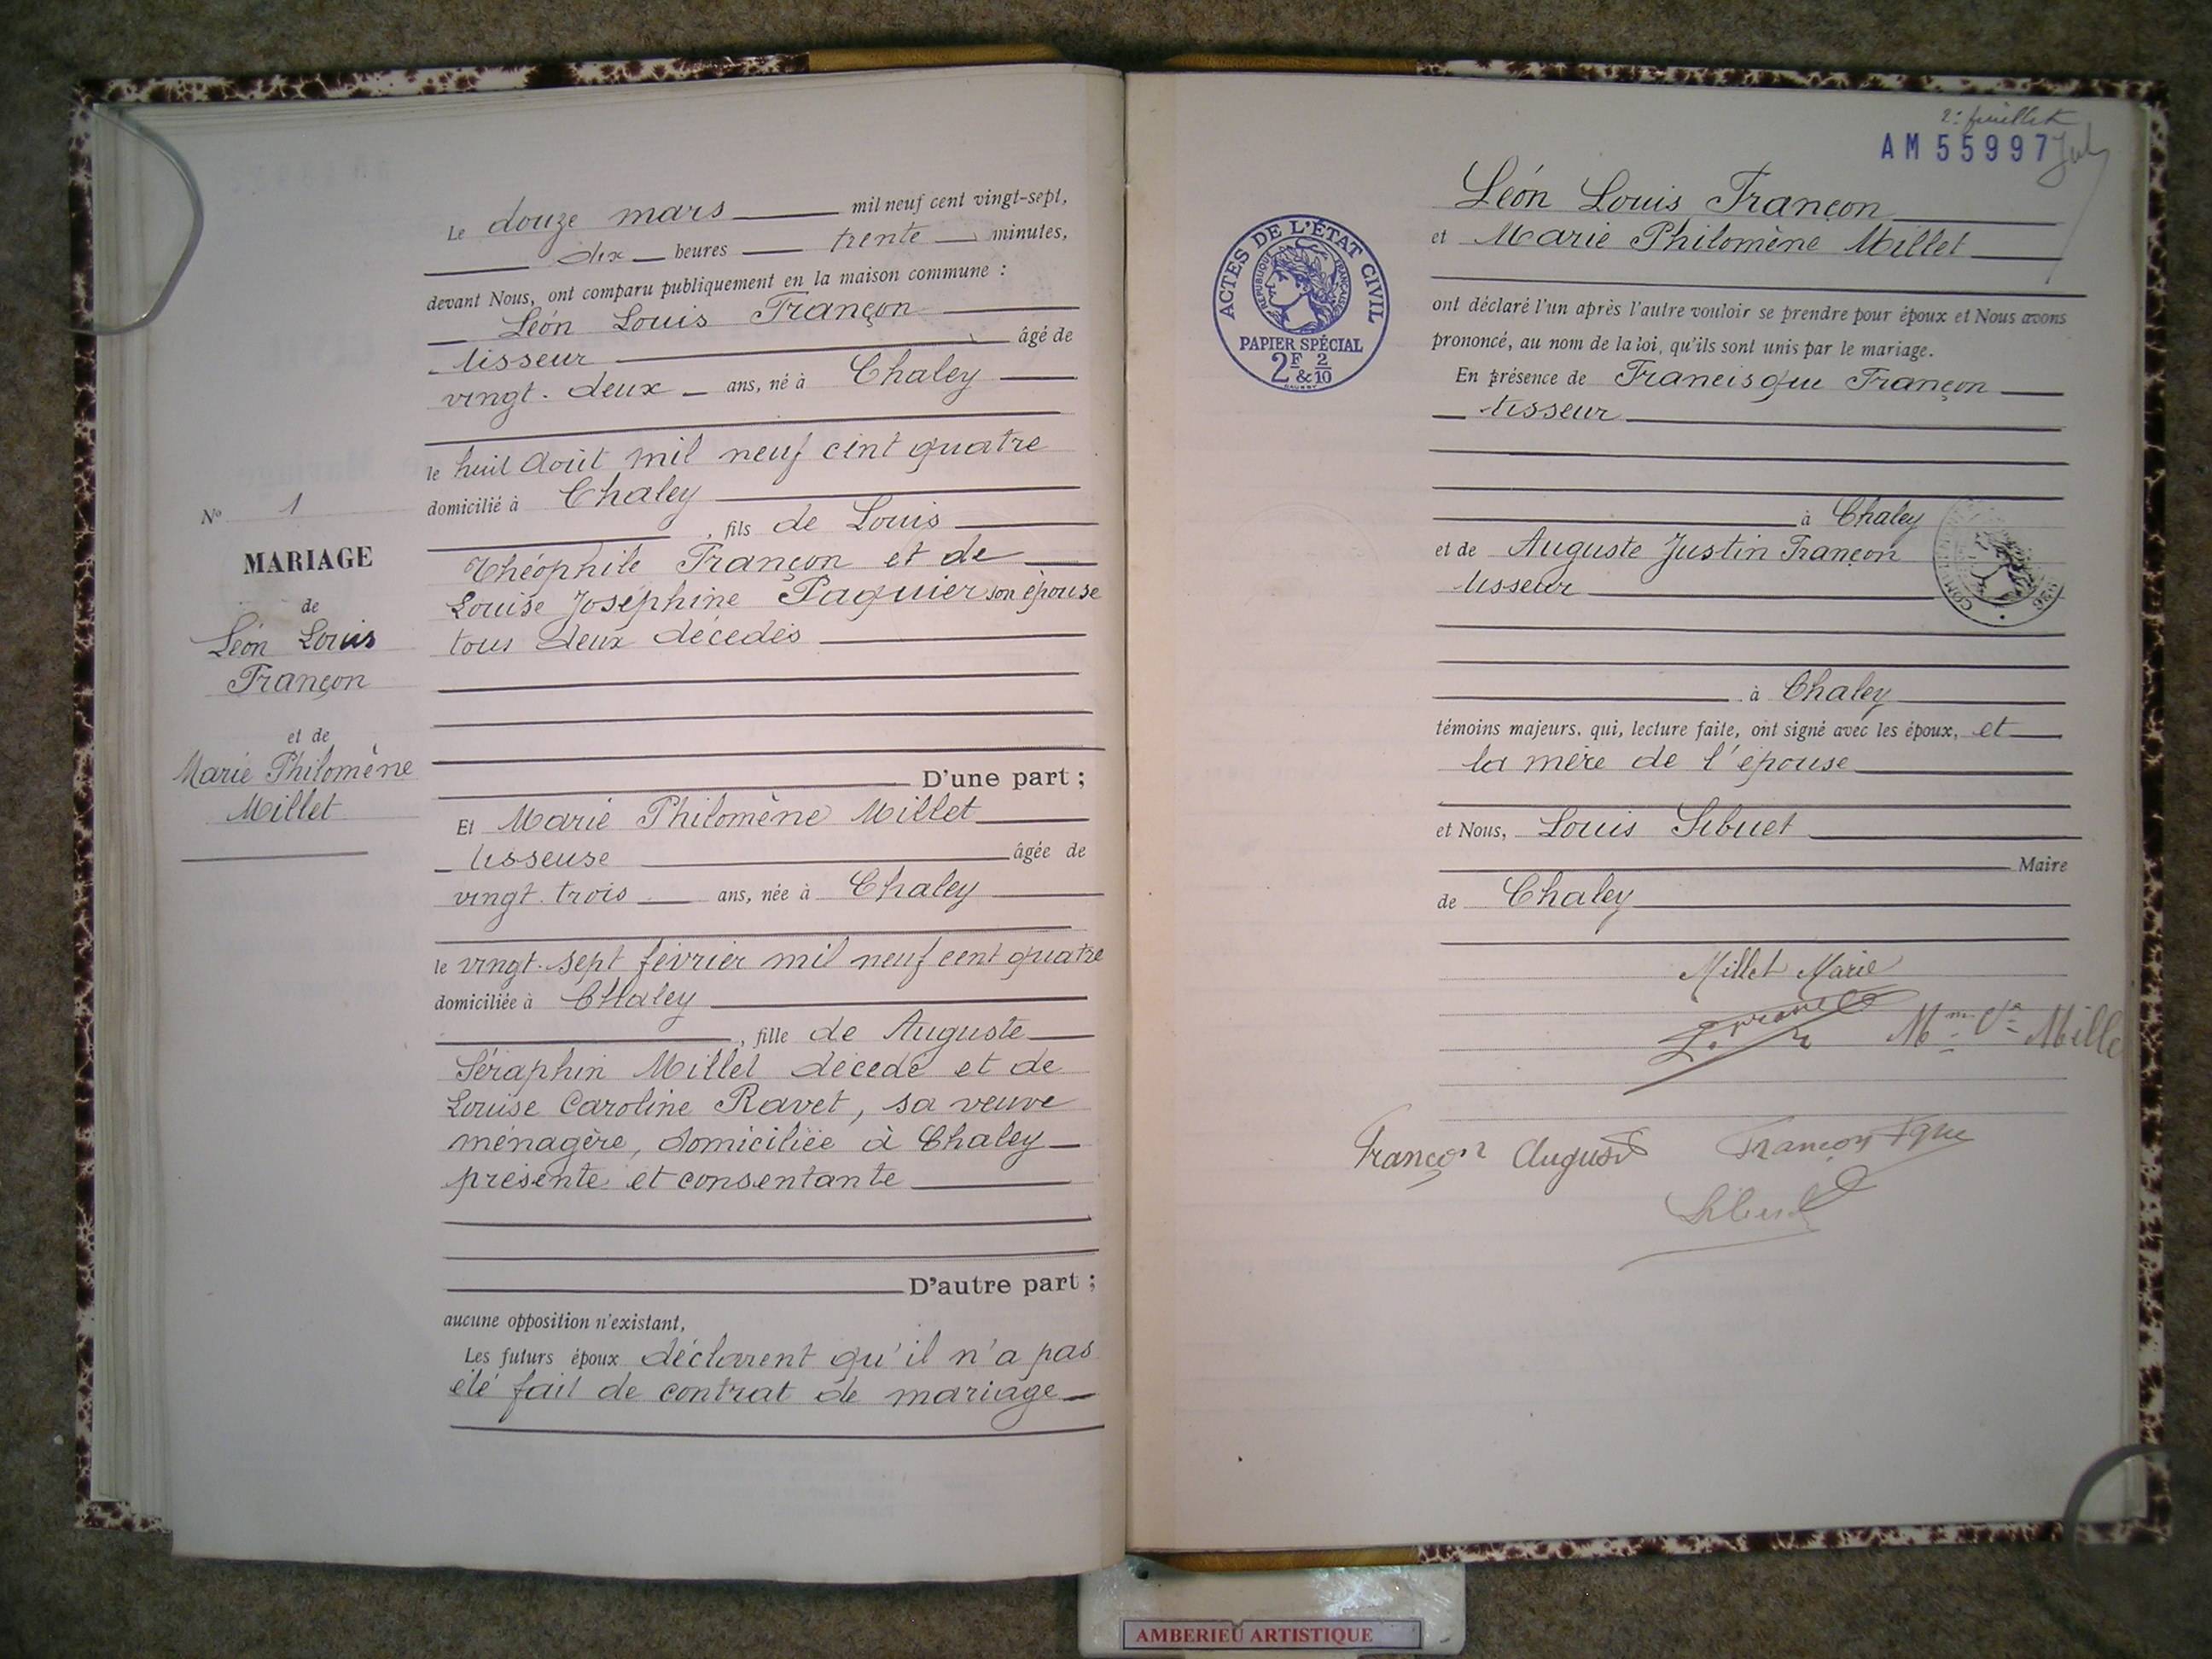 Le douze mars mil neuf cent vingt-sept,
dix heures trente minutes,
devant Nous, ont comparu publiquement en la maison commune :
Léon Louis Françon
tisseur âgé de
vingt-deux ans, né à Chaley
le huit Août mil neuf cent quatre
domicilié à Chaley
, fils de Louis
Théophile Françon et de
Louise Joséphine Paquier son épouse
tous deux décédés
D'une part ;
Et Marie Philomène Millet
tisseuse âgée de
vingt-trois ans, née à Chaley
le vingt-sept février mil neuf cent quatre
domiciliée à Chaley
, fille de Auguste
Séraphin Millet décédé et de
Louise Caroline Ravet, sa veuve
ménagère, domiciliée à Chaley
présente et consentante
D'autre part ;
aucune opposition n'existant,
Les futurs époux déclarent qu'il n'a pas
été fait de contrat de mariage
No 1
MARIAGE
de
Léon Louis
Françon
et de
Marie Philomène
Millet
2e feuillet
AM 55997
ACTES DE L'ÉTAT CIVIL
RÉPUBLIQUE FRANÇAISE
PAPIER SPÉCIAL
2F & 2/10
Léon Louis Françon
et Marie Philomène Millet
ont déclaré l'un après l'autre vouloir se prendre pour époux et Nous avons
prononcé, au nom de la loi, qu'ils sont unis par le mariage.
En présence de Francisque Françon
tisseur
à Chaley
et de Auguste Justin Françon
tisseur
à Chaley
témoins majeurs, qui, lecture faite, ont signé avec les époux, et
la mère de l'épouse
et Nous, Louis Sibuet
Maire
de Chaley
Millet Marie
Mme Ve Mille
Françon Auguste
Françon Fque
Sibuet
AMBERIEU ARTISTIQUE